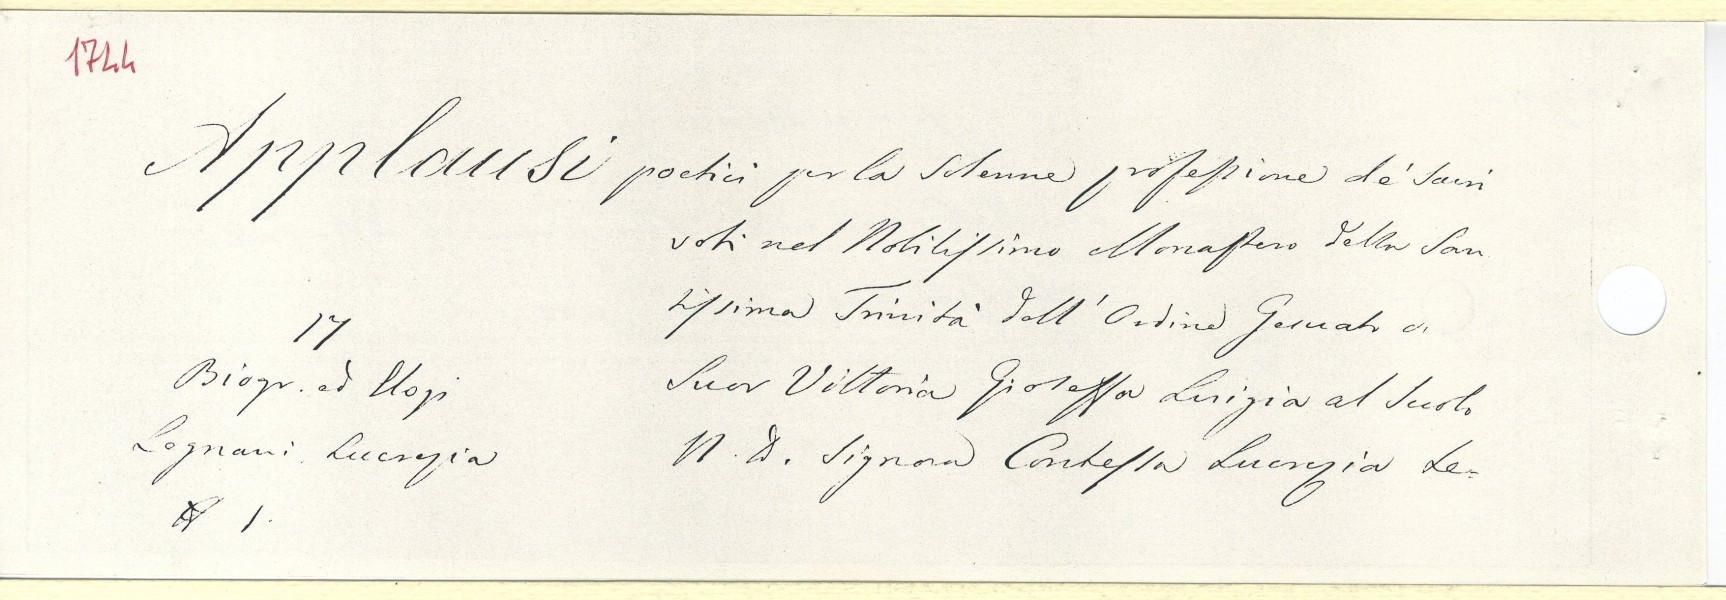 1744
Applausi poetici per la solenne professione de' sacri
voti nel Nobilissimo Monastero della San
tissima Trinità dell' Ordine Gesuato di
Suor Vittoria Gioseffa Luigia al Secolo
N. D. Signora Contessa Lucrezia Le-
17
Biogr. ed Elogi
Legnani Lucrezia
1.